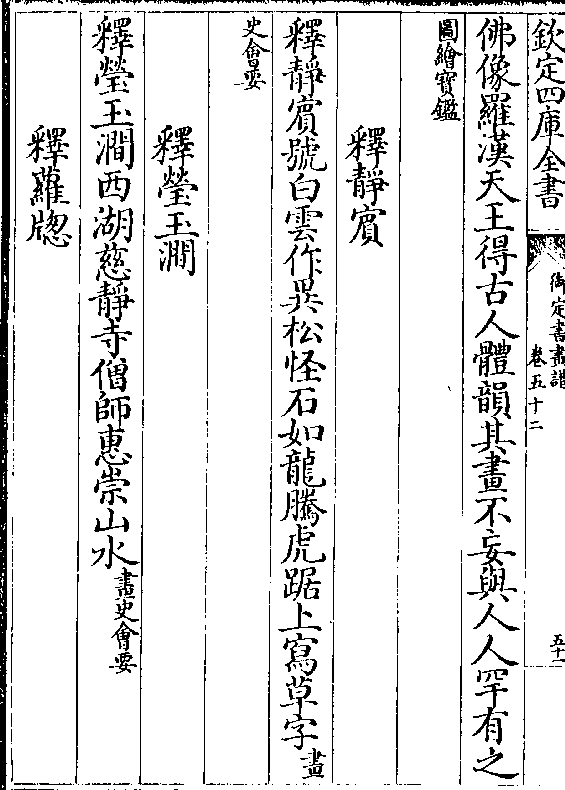 欽定四庫全書
御定書畫譜
卷五十二
五十一
佛像羅漢天王得古人體韻其畫不妄與人人罕有之
圖繪寶鑑
釋靜賓
釋靜賓號白雲作異松怪石如龍騰虎踞上寫草字畫
史會要
釋瑩玉澗
釋瑩玉澗西湖慈靜寺僧師惠崇山水畫史會要
釋蘿牕